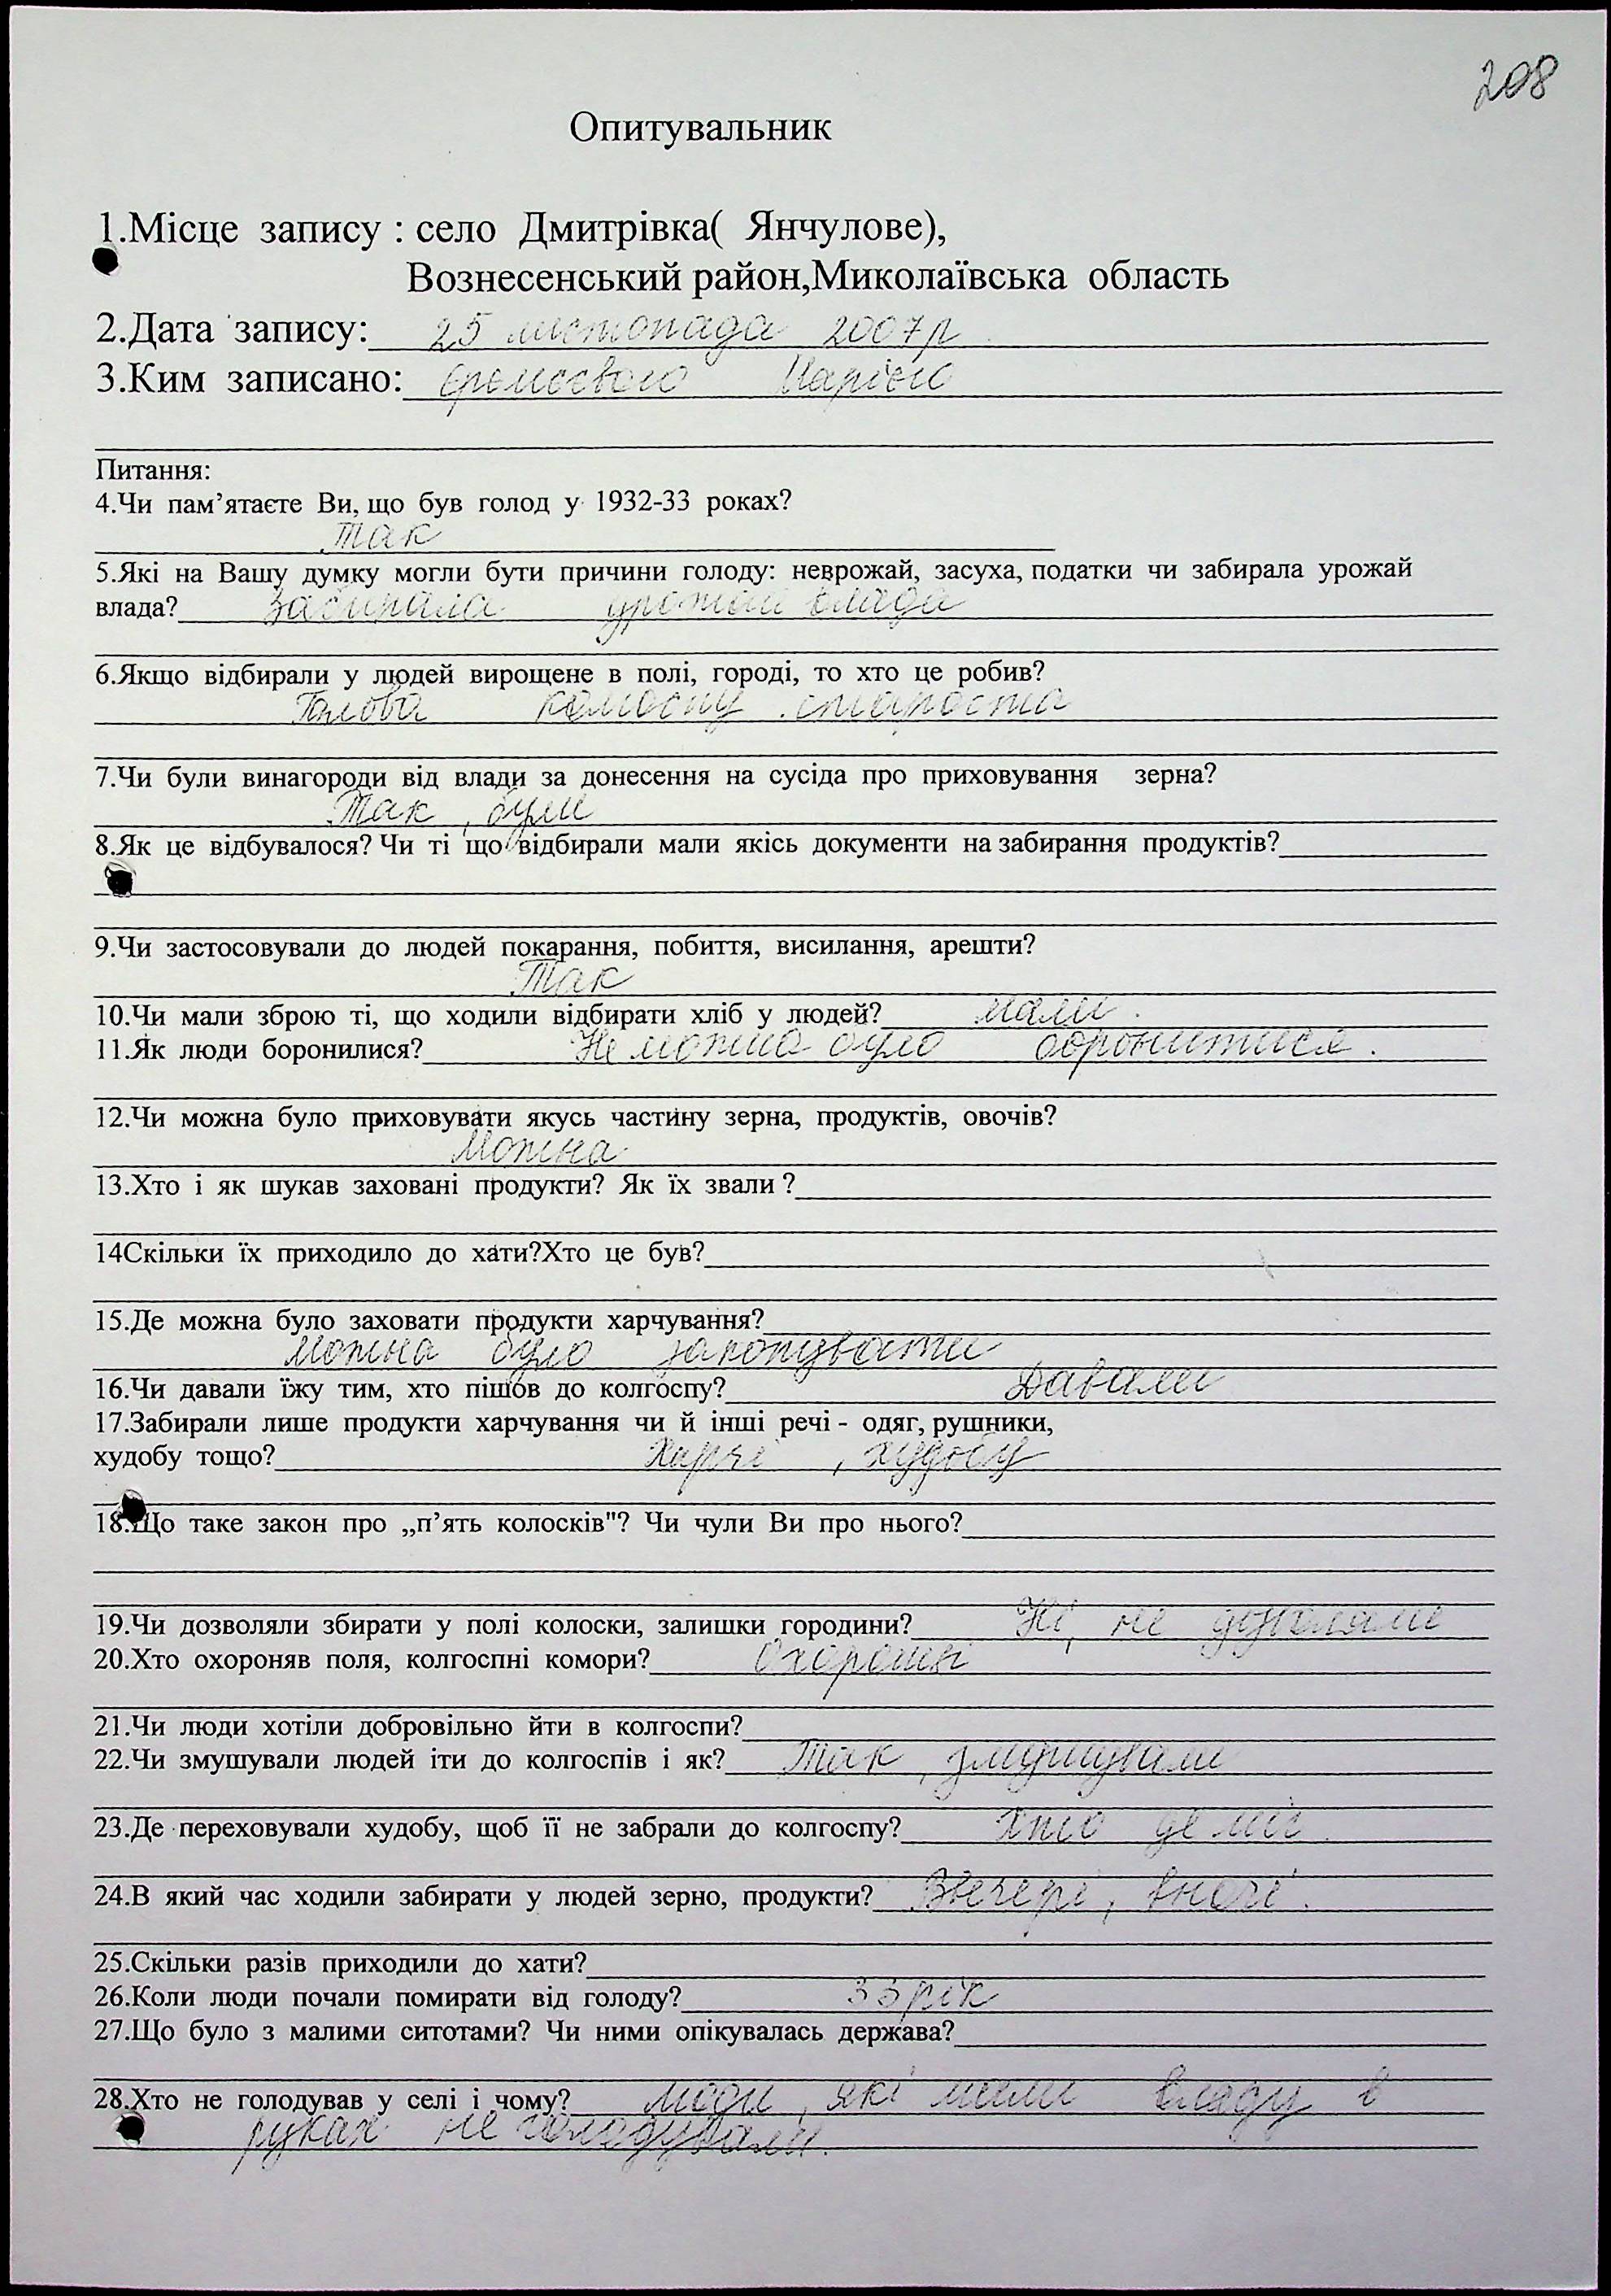 208
Опитувальник
1.Місце запису : село Дмитрівка( Янчулове),
Вознесенський район,Миколаївська область
2.Дата запису: 25 листопада 2007р
3.Ким записано: Єремєєвою Марією
Питання:
4.Чи пам’ятаєте Ви, що був голод у 1932-33 роках?
Так
5.Які на Вашу думку могли бути причини голоду: неврожай, засуха, податки чи забирала урожай
влада? Забирала урожай влада
6.Якщо відбирали у людей вирощене в полі, городі, то хто це робив?
Голова колгоспу староста
7.Чи були винагороди від влади за донесення на сусіда про приховування зерна?
Так, були
8.Як це відбувалося? Чи ті що відбирали мали якісь документи на забирання продуктів?
9.Чи застосовували до людей покарання, побиття, висилання, арешти?
Так
10.Чи мали зброю ті, що ходили відбирати хліб у людей? мали.
11.Як люди боронилися? Не можна було боронитися.
12.Чи можна було приховувати якусь частину зерна, продуктів, овочів?
Можна
13.Хто і як шукав заховані продукти? Як їх звали ?
14Скільки їх приходило до хати?Хто це був?
15.Де можна було заховати продукти харчування?
Можна було закопувати
16.Чи давали їжу тим, хто пішов до колгоспу? Давали
17.Забирали лише продукти харчування чи й інші речі - одяг, рушники,
худобу тощо? Харчі , худобу
18.Що таке закон про „п’ять колосків"? Чи чули Ви про нього?
19.Чи дозволяли збирати у полі колоски, залишки городини? Ні, не дозволяли
20.Хто охороняв поля, колгоспні комори? Охоронці
21.Чи люди хотіли добровільно йти в колгоспи?
22.Чи змушували людей іти до колгоспів і як? Так , змушували
23.Де переховували худобу, щоб її не забрали до колгоспу? Хто де міг.
24.В який час ходили забирати у людей зерно, продукти? Ввечері, вночі.
25.Скільки разів приходили до хати?
26.Коли люди почали помирати від голоду? 33 рік
27.Що було з малими ситотами? Чи ними опікувалась держава?
28.Хто не голодував у селі і чому? Люди, які мали владу в
руках не голодували.